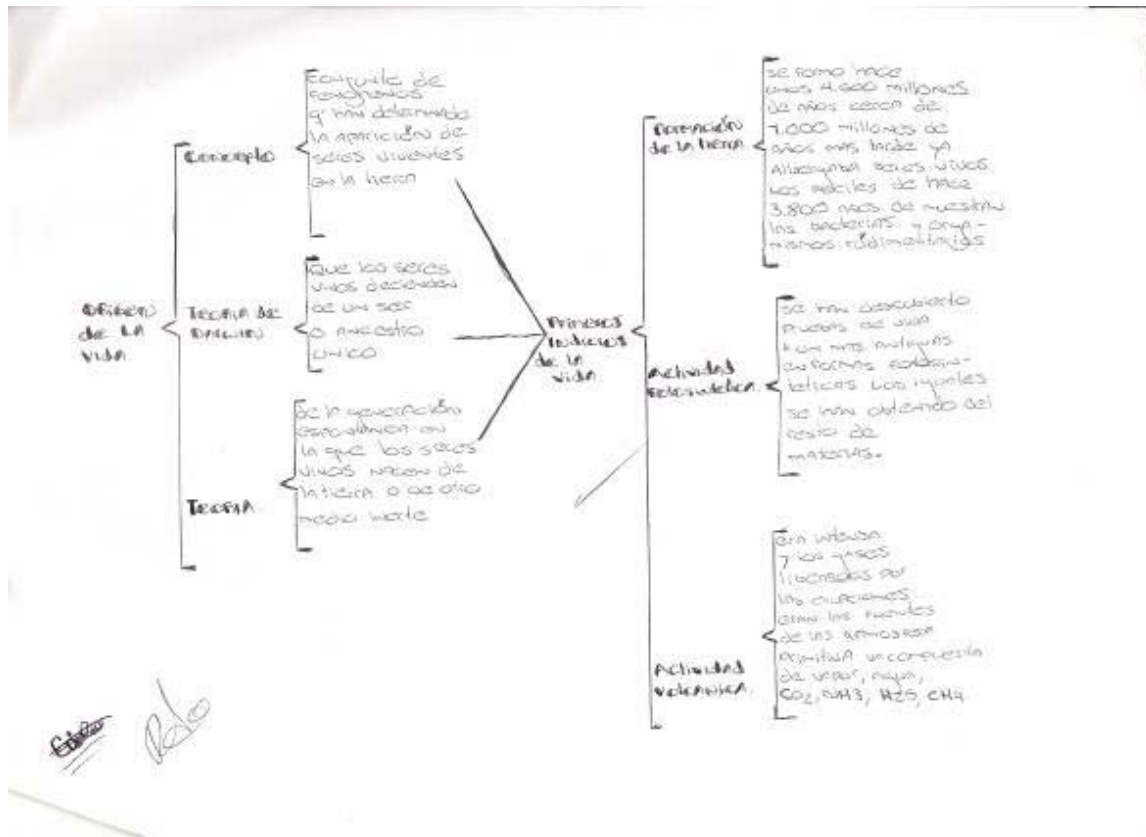 ORIGEN
de LA
VIDA
CONCEPTO
Conjunto de
fenomenos
q' han determinado
la aparición de
seres vivientes
en la tierra
TEORIA DE
DARWIN
Que los seres
vivos decienden
de un ser
o ancestro
unico
TEORIA
de la generación
espontánea en
la que los seres
vivos nacen de
la tierra o de otro
medio inerte
Primeros
Indicios
de la
vida
Formación
de la tierra
se formo hace
unos 4.600 millones
de años cerca de
1.000 millones de
años mas tarde ya
albergaba seres vivos
Los fósiles de hace
3.800 años de muestran
las bacterias y orga-
nismos rudimentarios
Actividad
Fotosintetica
se han descubierto
pruebas de vida
aun mas antiguas
en formas fotosin-
teticas Las
se han obtenido del
resto de
materias.
Actividad
volcanica
era intensa
y los gases
liberados por
las erupciones
eran las fuentes
de las atmosfera
primitiva compuesta
de vapor, agua,
CO2, NH3, H2S, CH4